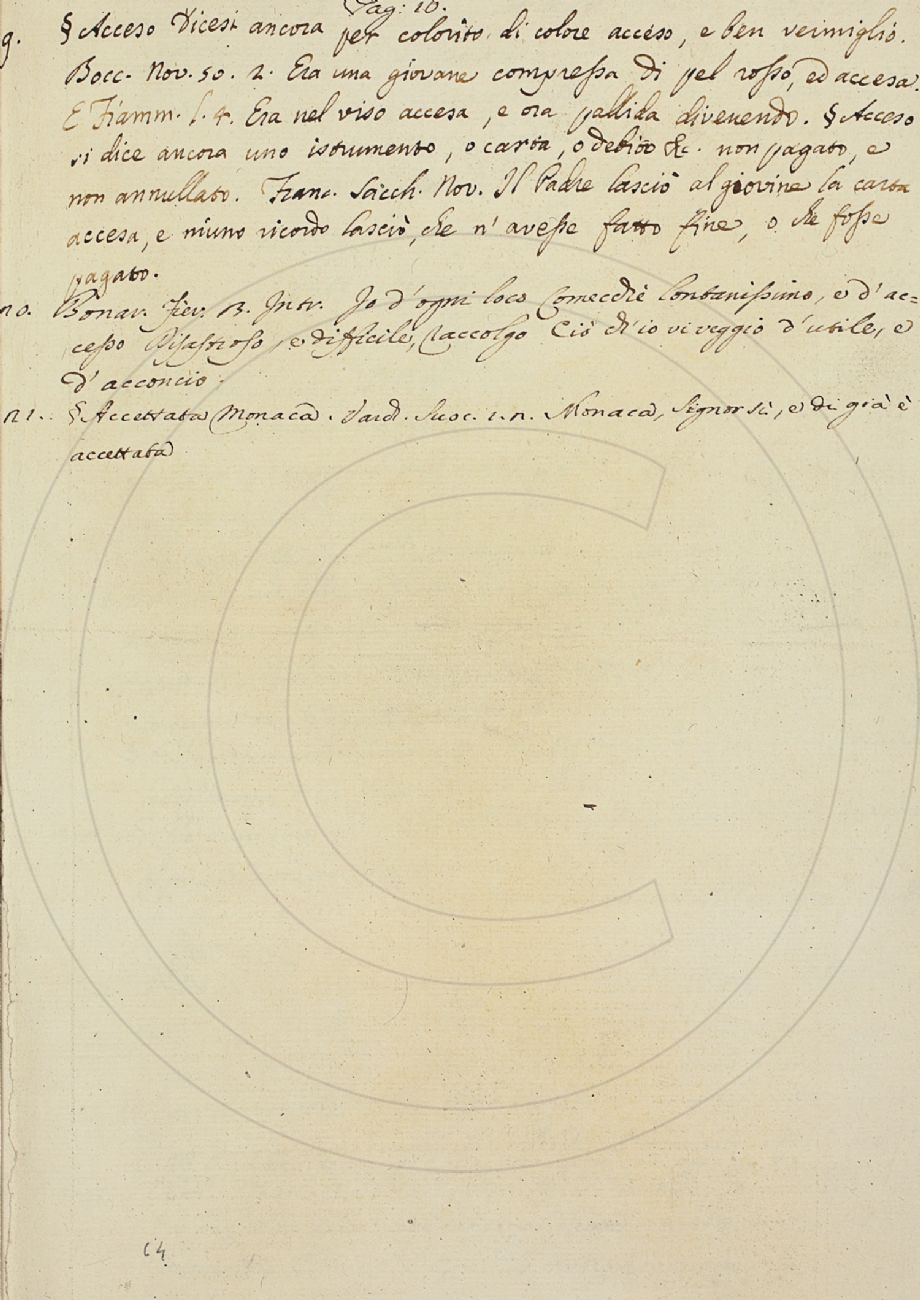 Pag: 10.
9. § Acceso Dicesi ancora per colorito di colore acceso, e ben vermiglio.
Bocc. Nov. 50. 2. Era una giovane compressa di pel rosso, ed accesa.
E Fiamm. l. 4. Era nel viso accesa, e ora pallida divenendo. § Acceso
si dice ancora uno istrumento, o carta, o debito &c. non pagato, e
non annullato. Franc. Sacch. Nov. Il Padre lasciò al giovine la carta
accesa, e niuno ricordo lasciò, che n' avesse fatto fine, o che fosse
pagato.
20. Bonar. Fier. Intr. Io d' ogni loco Comecchè lontanissimo, e d' ac=
cesso Disastroso, e difficile, Raccolgo Ciò ch' io vi veggio d' utile, e
d' acconcio.
21. § Accettata Monaca. Monaca, Signor sì, e di già è
accettata
C4